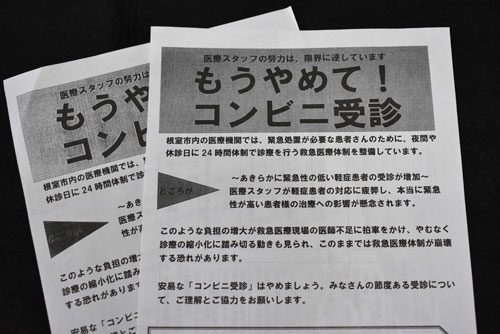 医療スタッフの努力は、限界に達しています
もうやめて！
コンビニ受診
根室市内の医療機関では、緊急処置が必要な患者さんのために、夜間や
休診日に24時間体制で診療を行う救急医療体制を整備しています。
ところが
～あきらかに緊急性の低い軽症患者の受診が増加～
医療スタッフが軽症患者の対応に疲弊し、本当に緊急
性が高い患者様の治療への影響が懸念されます。
このような負担の増大が救急医療現場の医師不足に拍車をかけ、やむなく
診療の縮小化に踏み切る動きも見られ、このままでは救急医療体制が崩壊
する恐れがあります。
安易な「コンビニ受診」はやめましょう。みなさんの節度ある受診につい
て、ご理解とご協力をお願いします。
医療スタッフの努力は
もうや
コンビ
根室市内の医療機関では、
休診日に24時間体制で診
～あ
医療ス
性が高
このような負担の増大が
診療の縮小化に踏み切る
する恐れがあります。
安易な「コンビニ受診」
て、ご理解とご協力を